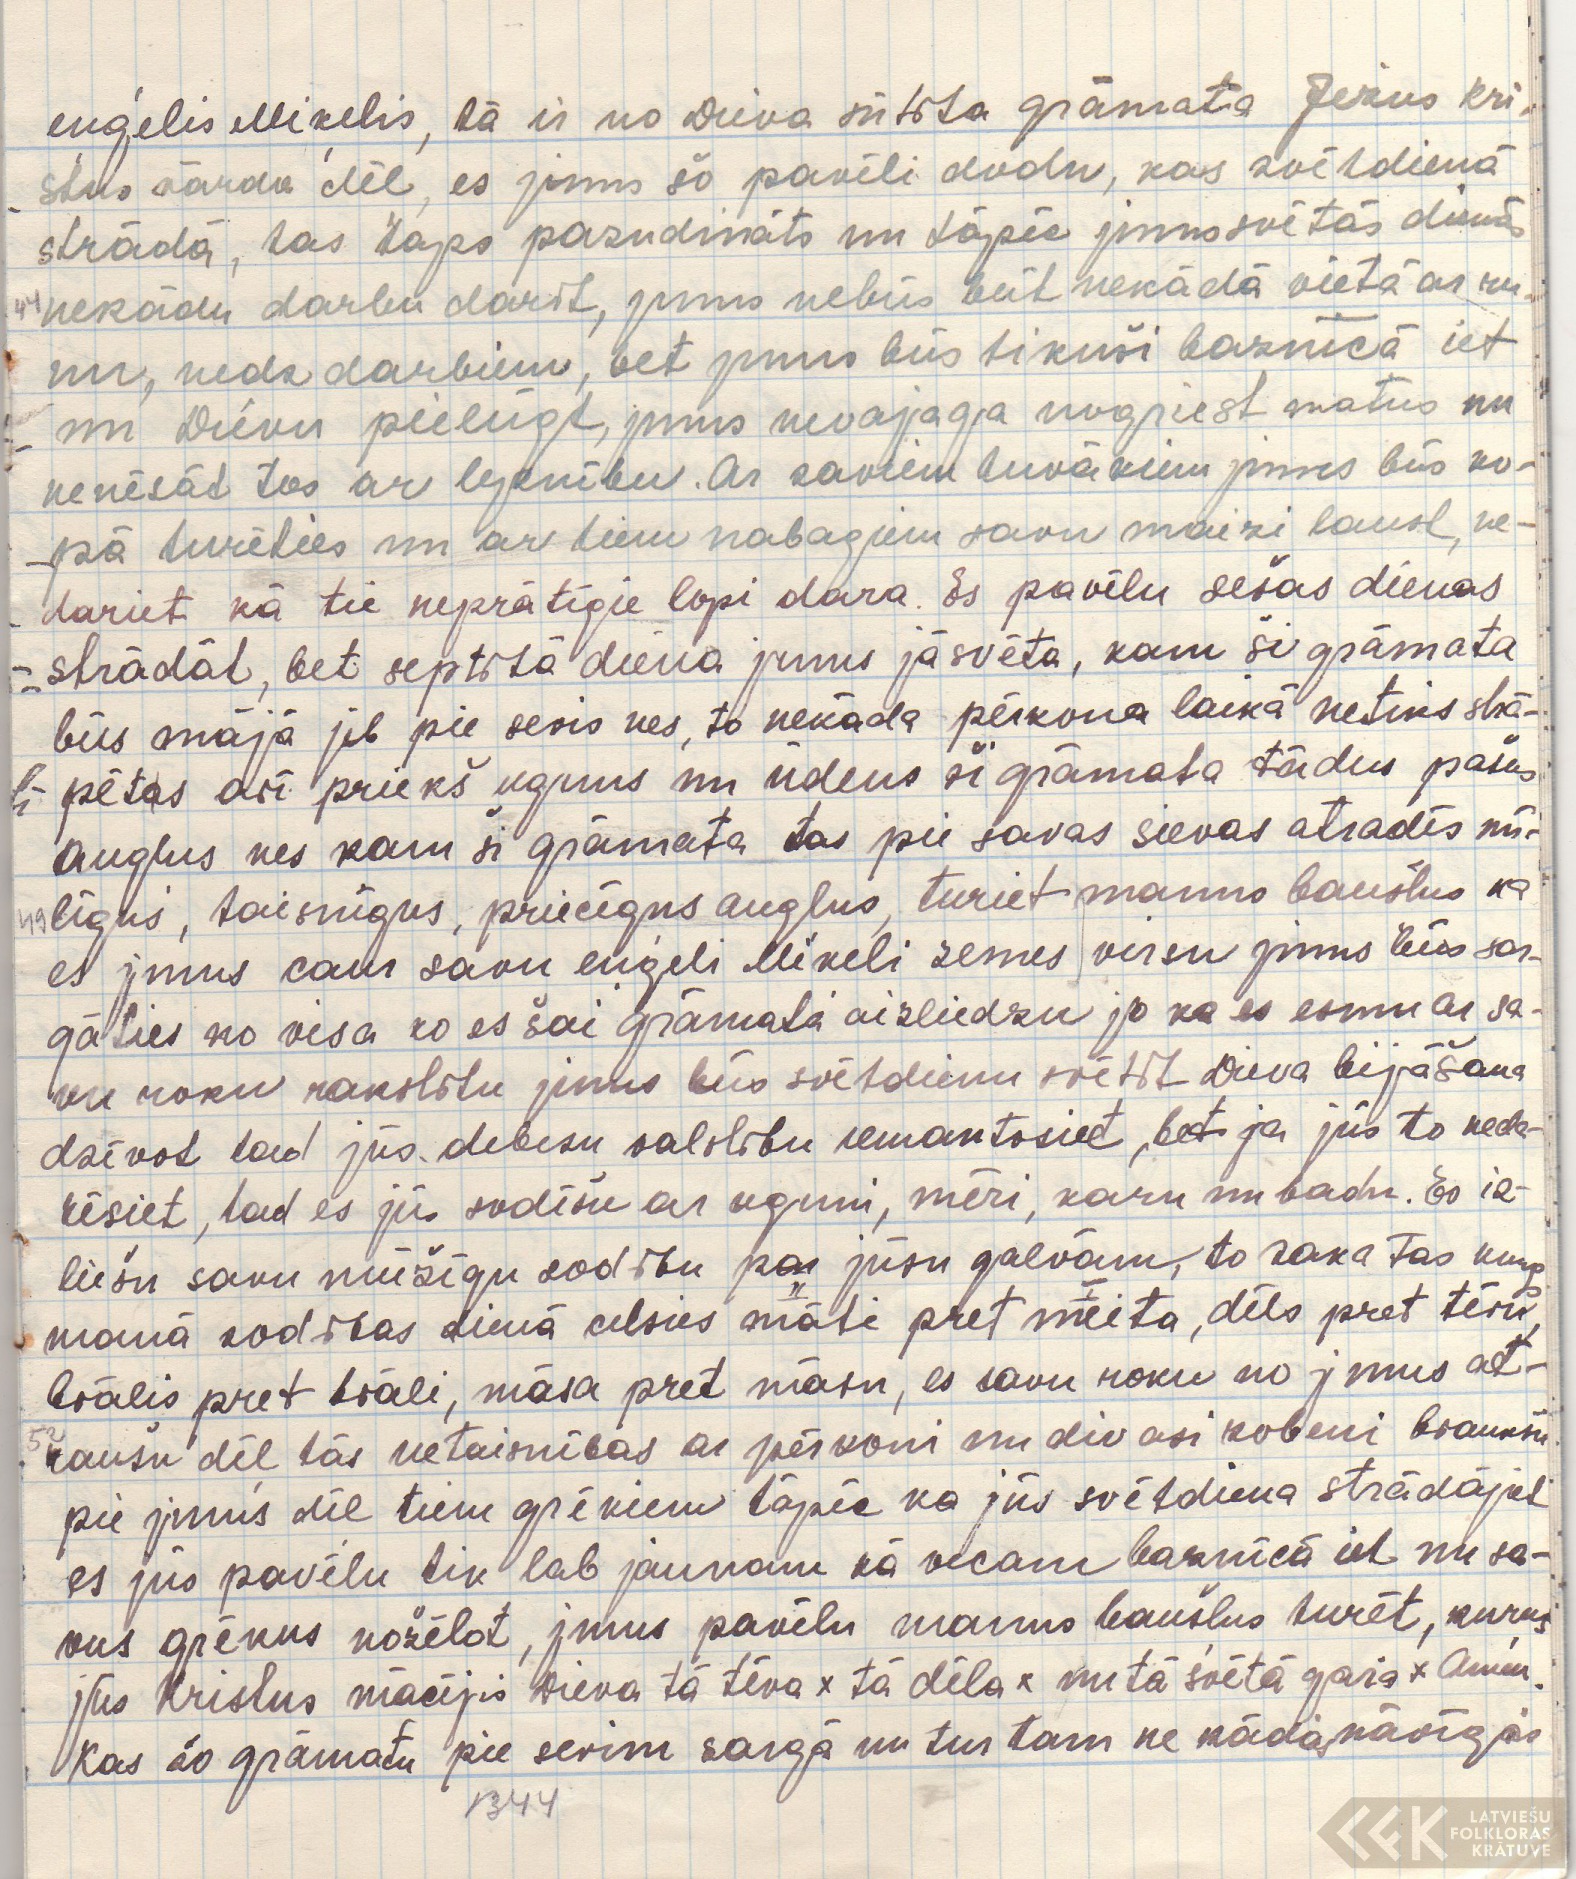 enģelis Miķelis, tā ir no Dieva sūtīta grāmata Jezus Kri-
stus vārda dēļ, es jums šo pavēli dodu, kas svētdienā
strādā, tas taps pazudināts un tāpēc jums svētās dienās
nekādu darbu darīt, jums nebūs būt nekādā vietā ar ru-
nu, nedz darbiem, bet jums būs tikuši baznīcā iet
un Dievu pielūgt, jums nevajaga nogriest matus un
nenēsāt tos ar lepnību. Ar saviem tuvākiem jums būs ko-
pā turēties un ar tiem nabagiem savu maizi lauzt, ne-
dariet kā tie neprātīgie lopi dara. Es pavēlu sešas dienas
strādāt, bet septītā diena jums jāsvēta, kam ši grāmata
būs mājā jeb pie sevis nes, to nekāda pērkona laikā netiks strā-
pētas arī priekš uguns un ūdens ši grāmata tādus pašus
augļus nes kam ši grāmata tas pie savas sievas atradīs mī-
līgus, taisnīgus, priecīgus augļus, turiet manus baušlus ka
es jums caur savu eņģeli Miķeli zemes virsu jums būs sar-
gāties no visa ko es šai grāmatā aizliedzu jo ka es esmu ar sa-
vu roku rakstītu jums būs svētdienu svētīt Dieva bijāšana
dzīvot tad jūs debesu valstību iemantosiet, bet ja jūs to neda-
rīsiet, tad es jūs sodīšu ar uguni, mēri, karu un badu. Es iz-
liešu savu mūžīgu sodību par jūsu galvām, to saka tas kungs
manā sodības dienā celsies māti pret meita, dēls pret tēvu,
brālis pret brāli, māsa pret māsu, es savu roku no jmus at-
raušu dēļ tās netaisnības ar pērkoni un div asi zobeni braukšu
pie jums dēļ tiem grēkiem tāpēc ka jūs svētdiena strādājat
es jūs pavēlu tik lab jaunam kā vecam baznīcā iet un sa-
vus grēkus nožēlot, jmus pavēlu manus baušlus turēt, kurus
jūs Kristus mācījis Dieva tā tēva x tā dēla x un tā svētā gara x Amen.
Kas šo grāmatu pie sevim sargā un tur tam ne kādas nāvīgas
1344
LATVIEŠU
FOLKLORAS
KRĀTUVE